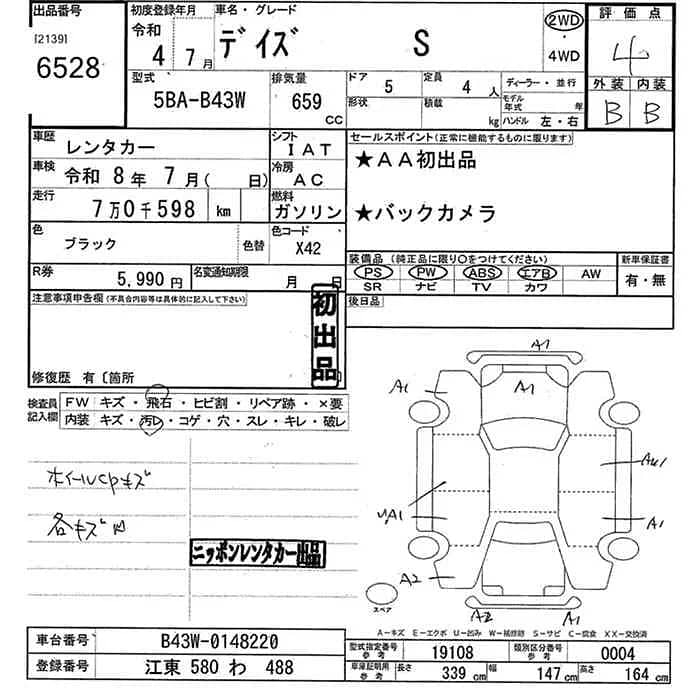 出品番号
[2139]
6528
初度登録年月
令和
4年 7月
車名・グレード
デイズ S
2WD
・
4WD
評価点
4
外装 内装
B B
型式
5BA-B43W
排気量
659
CC
ドア 5
定員 4人
形状
積載 kg
ディーラー・並行
モデル年式 年
ハンドル 左・右
車歴 レンタカー
シフト IAT
セールスポイント(正常に機能するものに限ります)
★AA初出品
車検 令和 8年 7月( 日)
冷房 AC
走行 7万0千598 km
燃料 ガソリン
★バックカメラ
色 ブラック 色替
色コード X42
装備品(純正品に限り○をつけてください)
PS PW ABS エアB AW
SR ナビ TV カワ
新車保証書
有・無
R券 5,990円
名変通知期限 月 日
後日品
注意事項申告欄(不具合内容等は具体的に記入して下さい)
初出品
修復歴 有〔箇所 〕
検査員記入欄
FW キズ・飛石・ヒビ割・リペア跡・×要
内装 キズ・汚レ・コゲ・穴・スレ・キレ・破レ
各キズ凹
ニッポンレンタカー出品
A1
A1
A1
A1
A2
A2
A1
スペア
A-キズ E-エクボ U-凹み W-補修跡 S-サビ C-腐食 XX-交換済
車台番号 B43W-0148220
登録番号 江東 580 わ 488
型式指定番号参考 19108
類別区分番号参考 0004
車庫証明用参考 長さ 339cm 幅 147cm 高さ 164cm